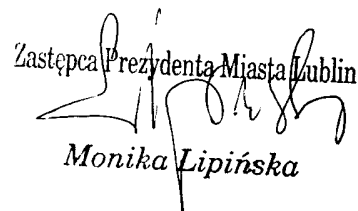 Zastępca Prezydenta Miasta Lublin
Monika Lipińska